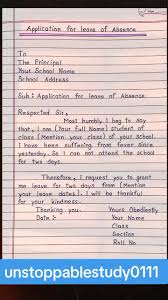 Application for leave of Absence
To
The Principal
Your School Name
School Address
Sub: Application for leave of Absence
Respected Sir,
Most humbly, I beg to say
that, I am (Your full Name) student of
class (Mention your class) of your school.
I have been suffering from fever since
yesterday. So I can not attend the school
for two days.
Therefore, I request you to grant
me leave for two days from (Mention
your leave dates). I will be thankful
for your kindness.
Thanking you. Yours Obediently
Date: Your Name
Class
Section
Roll No
unstoppablestudy0111